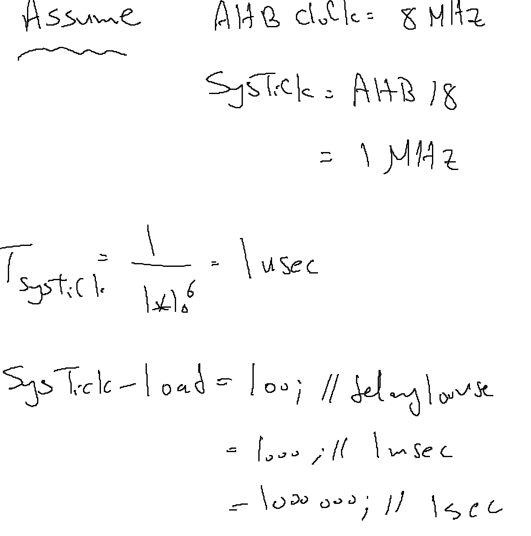 Assume AHB clock = 8 MHz
SysTick = AHB / 8
= 1 MHz
T SysTick = 1 / 1x10^6 = 1 usec
SysTick-load = 100; // delay 100use
= 1000; // 1msec
= 1000 000; // 1sec